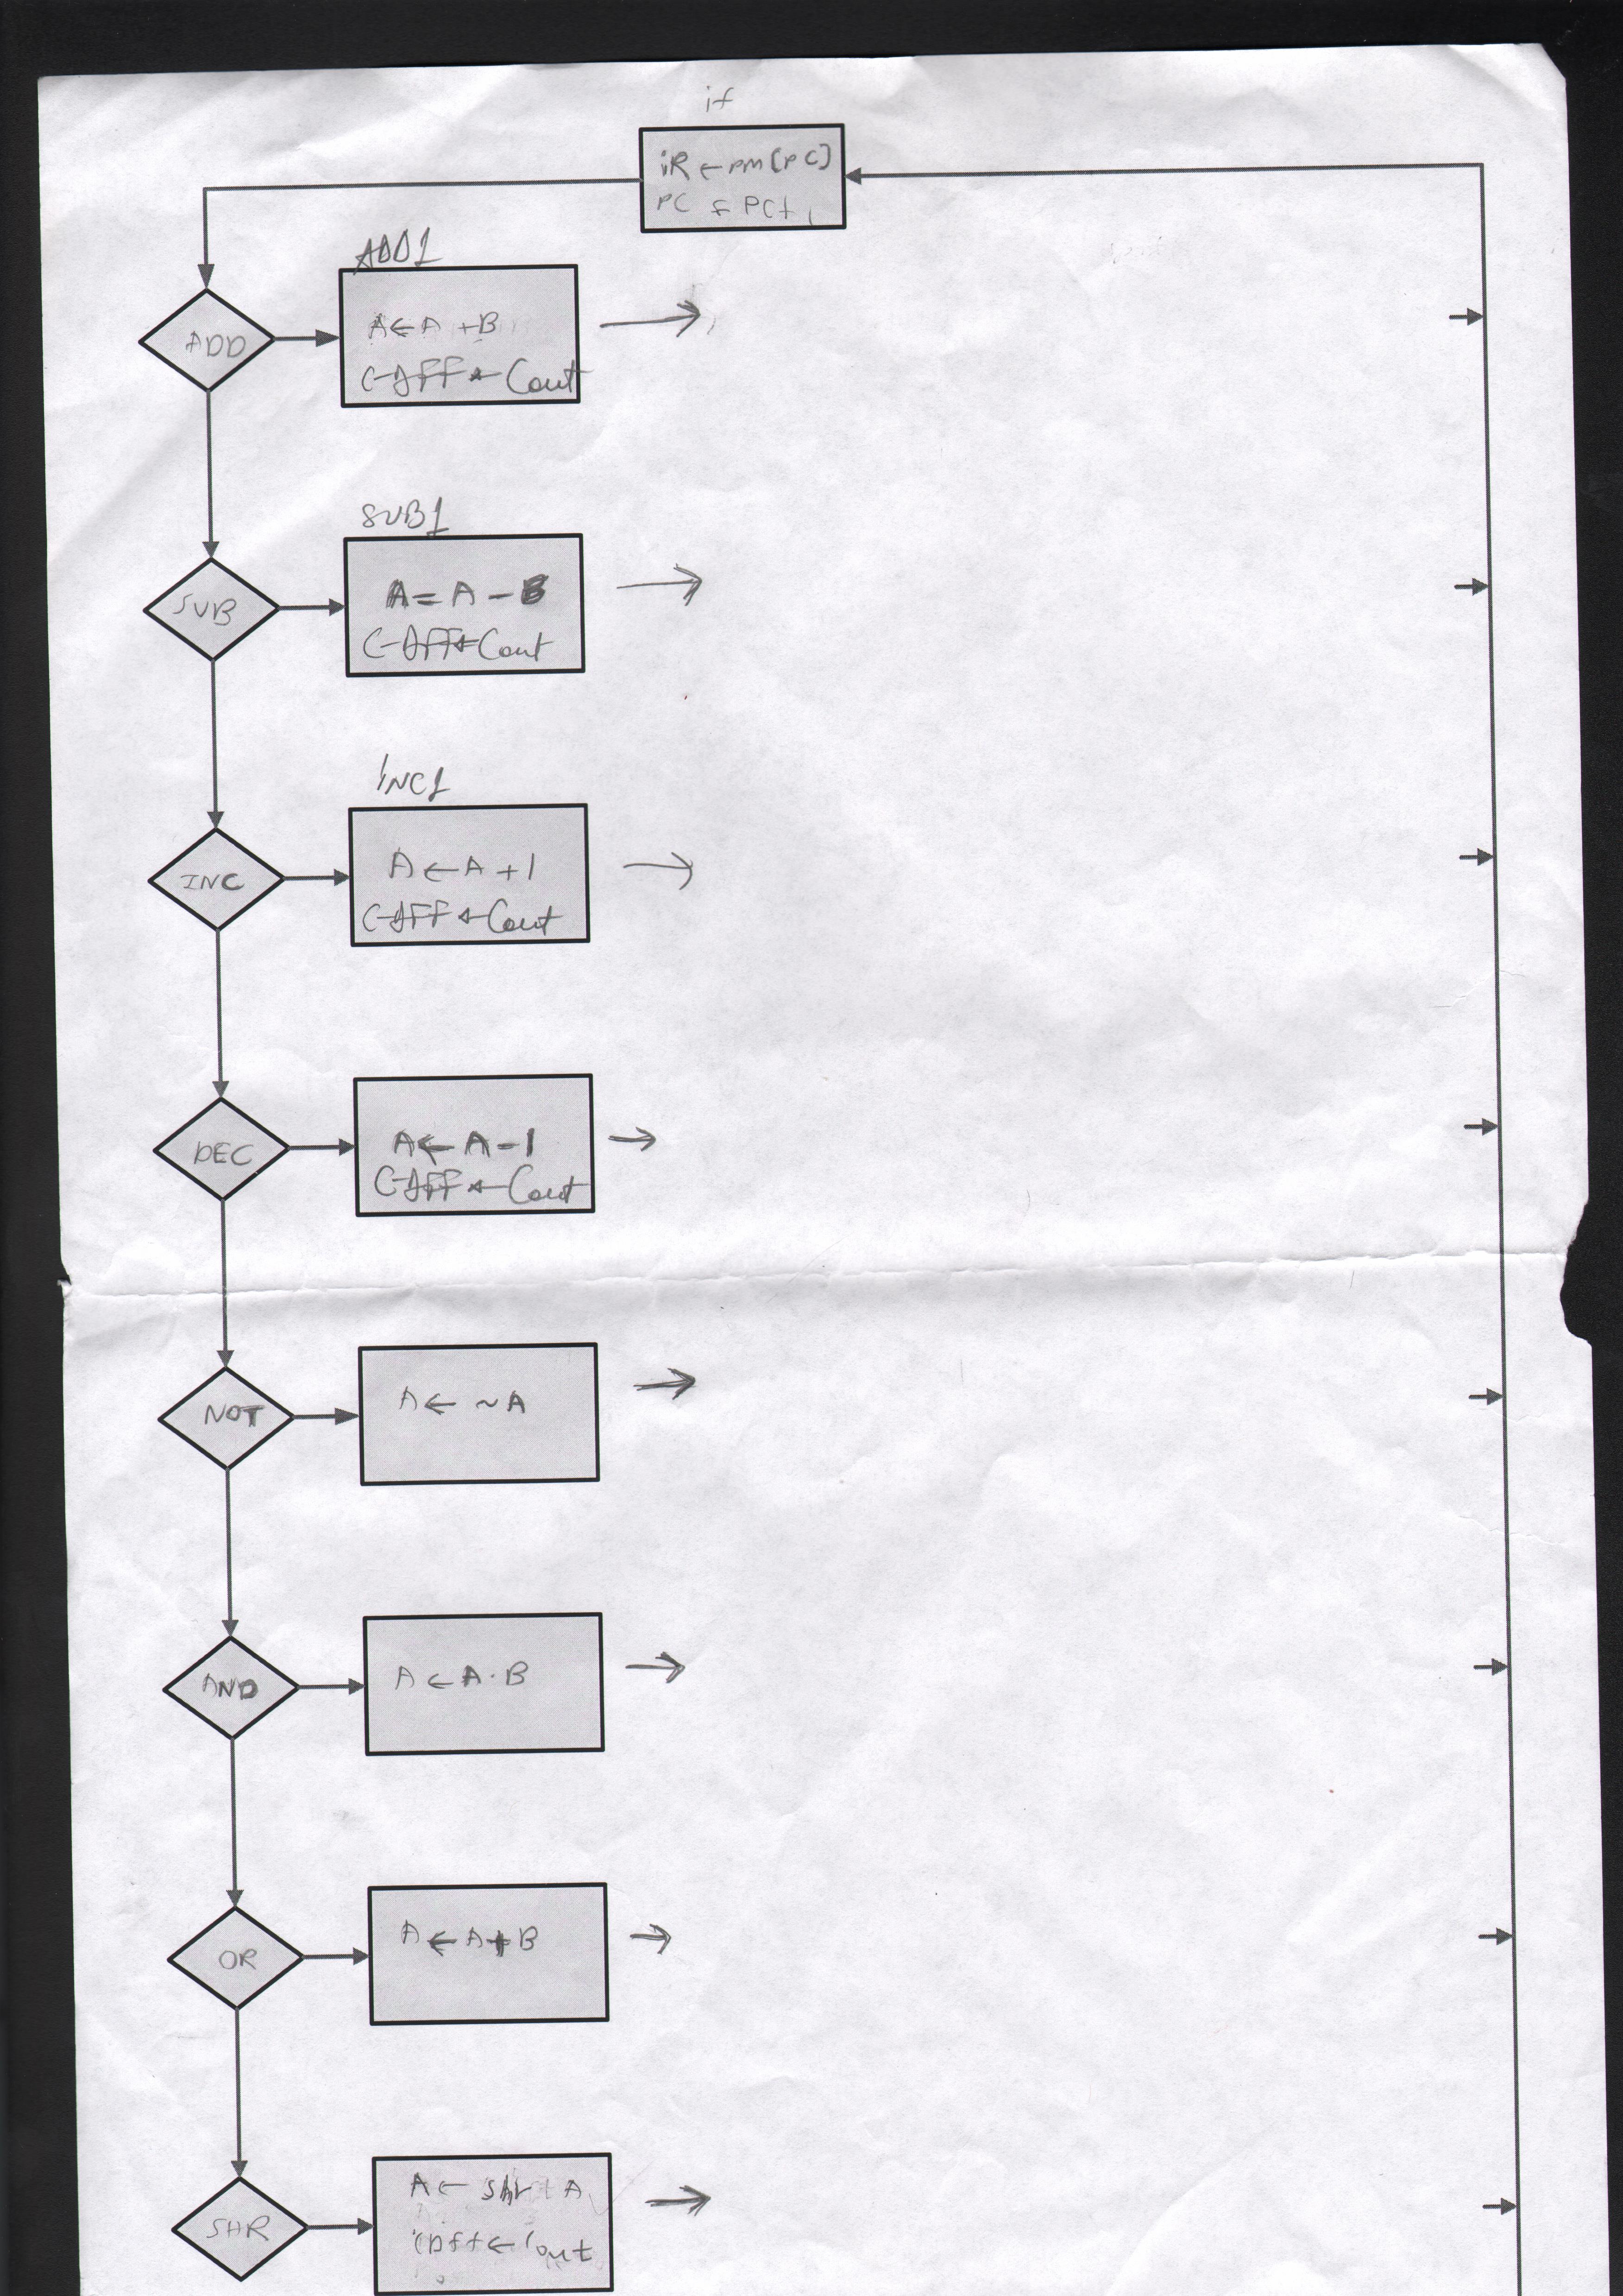 if
iR ← pm[PC]
PC ← PC+1
ADD1
ADD
A ← A + B
C-DFF ← Cout
SUB1
SUB
A = A - B
C-DFF ← Cout
INC1
INC
A ← A + 1
C-DFF ← Cout
DEC
A ← A - 1
C-DFF ← Cout
NOT
A ← ~A
AND
A ← A · B
OR
A ← A + B
SHR
A ← Shr A
CDff ← Cout